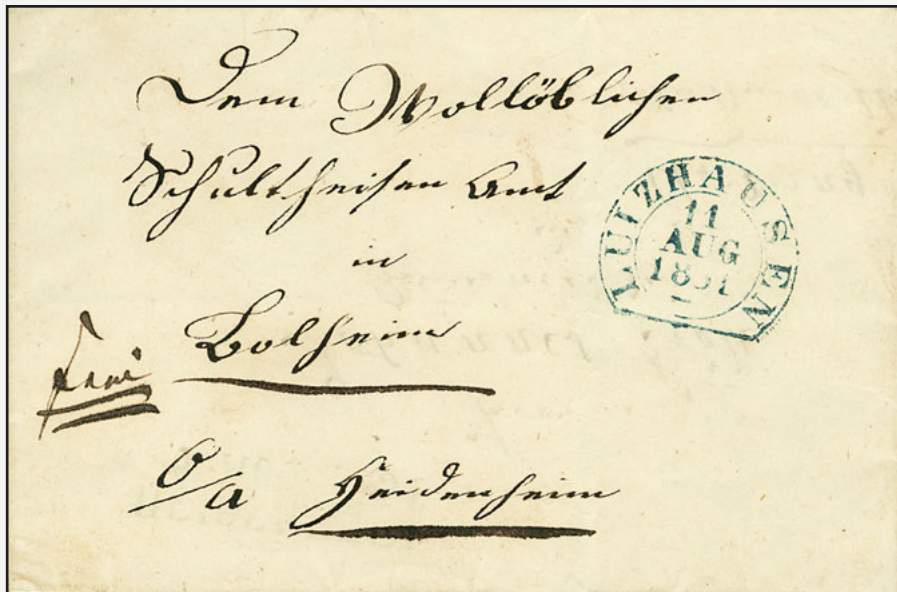 Dem Wollöblichen
Schultheisen Amt
in
Bolheim
frei
O/a Heidenheim
LUIZHAUSEN
11
AUG
1851